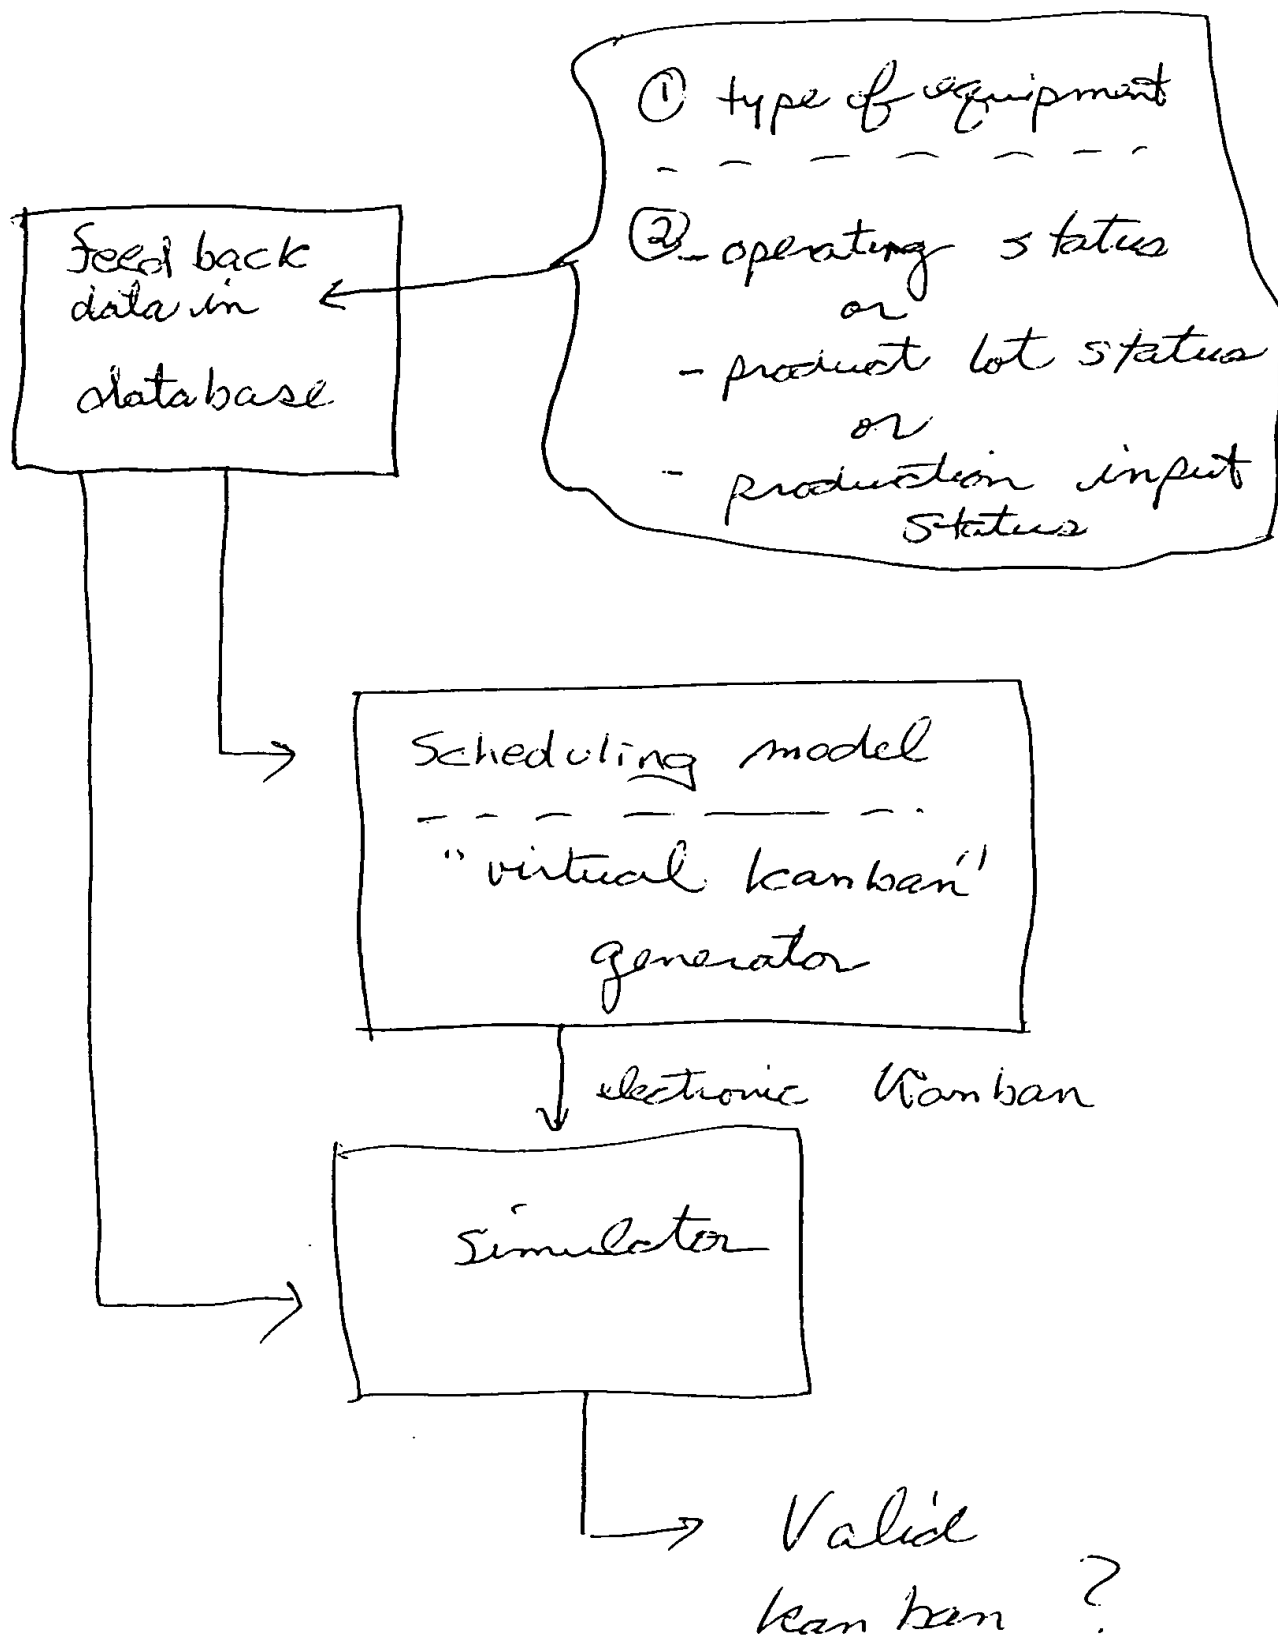 ① type of equipment
② - operating status
or
- product lot status
or
- production input
status
feedback
data in
database
Scheduling model
"virtual kanban"
generator
electronic Kanban
simulator
Valid
kanban ?